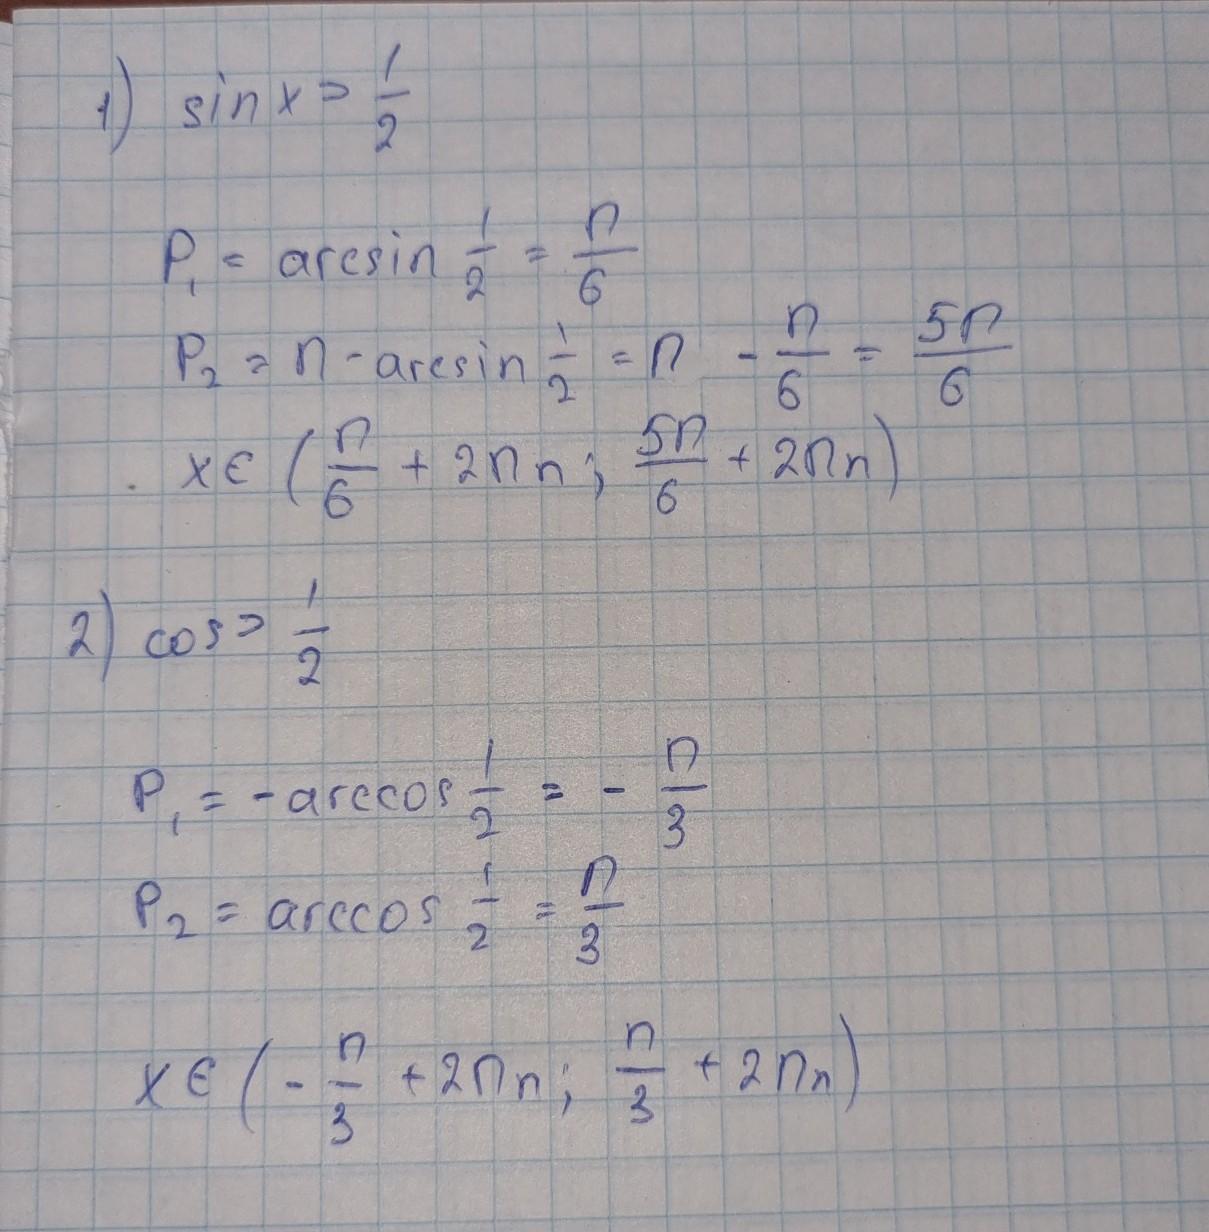 1) sin x > 1/2
P₁ = arcsin 1/2 = π/6
P₂ = π - arcsin 1/2 = π - π/6 = 5π/6
x ∈ (π/6 + 2πn; 5π/6 + 2πn)
2) cos > 1/2
P₁ = -arccos 1/2 = - π/3
P₂ = arccos 1/2 = π/3
x ∈ (-π/3 + 2πn; π/3 + 2πn)